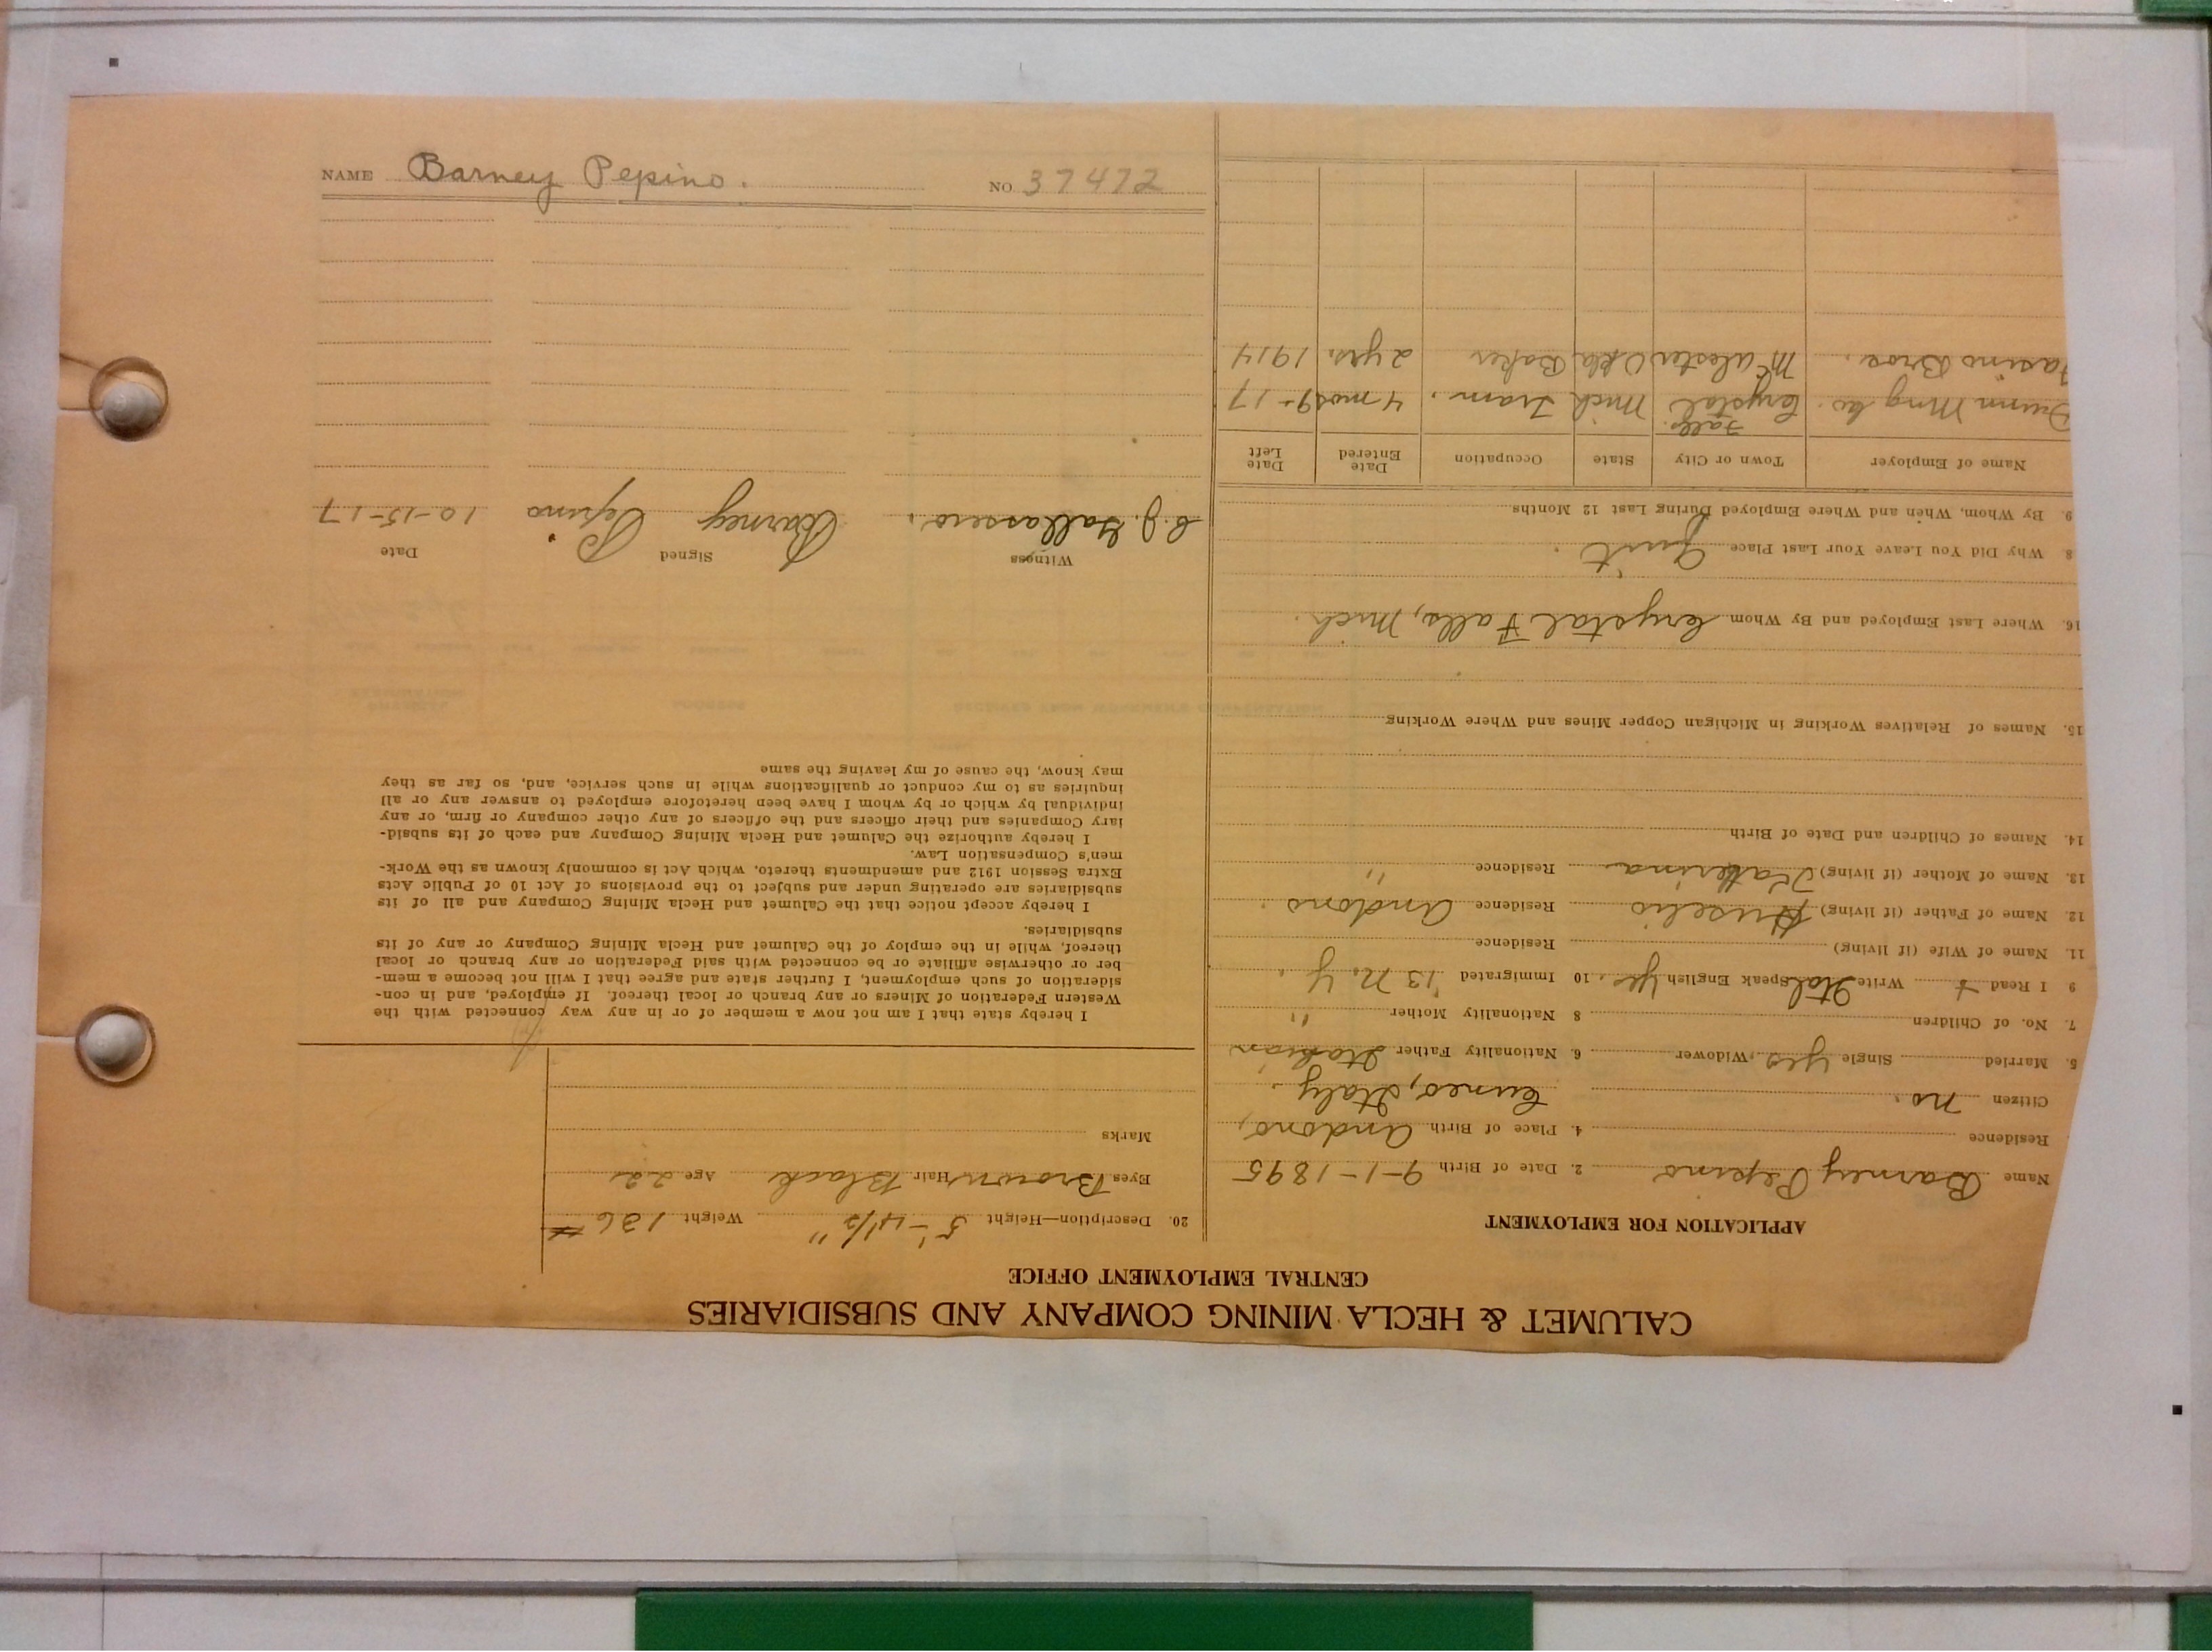 CALUMET & HECLA MINING COMPANY AND SUBSIDIARIES
CENTRAL EMPLOYMENT OFFICE
APPLICATION FOR EMPLOYMENT
Name Barney Pepino 2. Date of Birth 9-1-1895
Residence 4. Place of Birth Andono,
Citizen no. Cuneo, Italy.
5. Married Single yes, Widower 6. Nationality Father Italian
7. No. of Children 8 Nationality Mother "
9 I Read + Write Ital Speak English yes. 10 Immigrated '13 N. Y.
11. Name of Wife (if living) Residence
12. Name of Father (if living) Residence Andono.
13. Name of Mother (if living) Katterina Residence "
14. Names of Children and Date of Birth
15. Names of Relatives Working in Michigan Copper Mines and Where Working
16. Where Last Employed and By Whom Crystal Falls, Mich.
8. Why Did You Leave Your Last Place Quit.
9. By Whom, When and Where Employed During Last 12 Months
Name of Employer Town or City State Occupation Date Entered Date Left
Dunn Mng Co. Crystal Falls. Mich Tram. 4 mos 9-17
Fasino Bros. McAlester Okla Baker 2 yrs. 1914
20. Description—Height 5'-4½" Weight 136 #
Eyes Brown Hair Black Age 22
Marks
I hereby state that I am not now a member of or in any way connected with the
Western Federation of Miners or any branch or local thereof. If employed, and in con-
sideration of such employment, I further state and agree that I will not become a mem-
ber or otherwise affiliate or be connected with said Federation or any branch or local
thereof, while in the employ of the Calumet and Hecla Mining Company or any of its
subsidiaries.
I hereby accept notice that the Calumet and Hecla Mining Company and all of its
subsidiaries are operating under and subject to the provisions of Act 10 of Public Acts
Extra Session 1912 and amendments thereto, which Act is commonly known as the Work-
men's Compensation Law.
I hereby authorize the Calumet and Hecla Mining Company and each of its subsid-
iary Companies and their officers and the officers of any other company or firm, or any
individual by which or by whom I have been heretofore employed to answer any or all
inquiries as to my conduct or qualifications while in such service, and, so far as they
may know, the cause of my leaving the same
Witness Signed Date
Barney Pepino 10-15-17
NAME Barney Pepino. NO. 37472